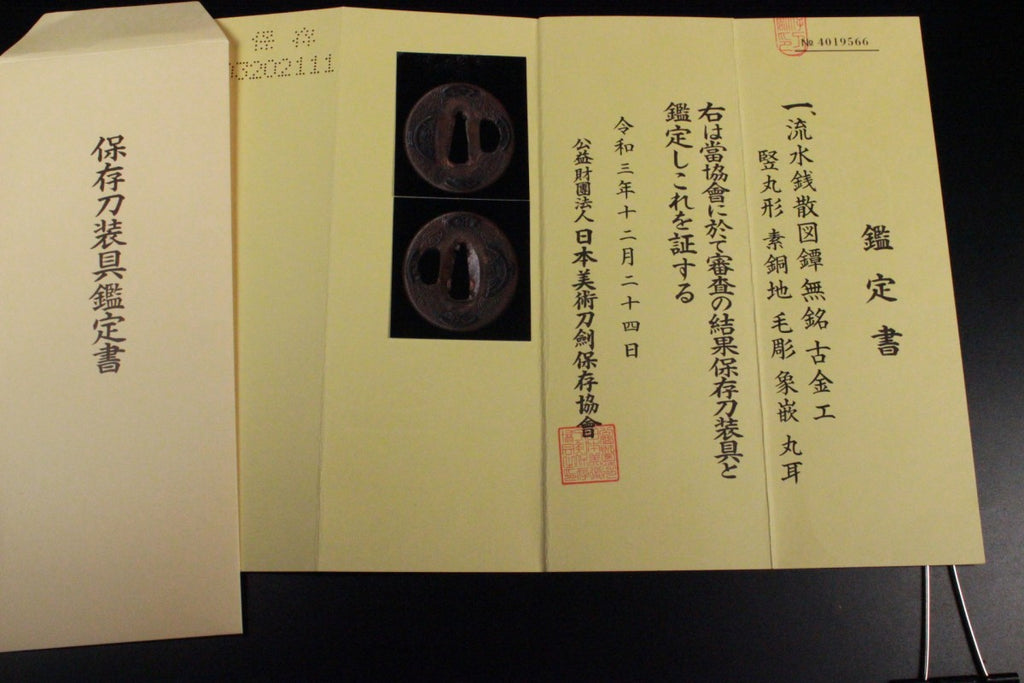 № 4019566
鑑定書
一、流水銭散図鐔 無銘 古金工
竪丸形 素銅地 毛彫 象嵌 丸耳
右は當協會に於て審査の結果保存刀装具と
鑑定しこれを証する
令和三年十二月二十四日
公益財團法人 日本美術刀劍保存協會
保存
03202111
保存刀装具鑑定書